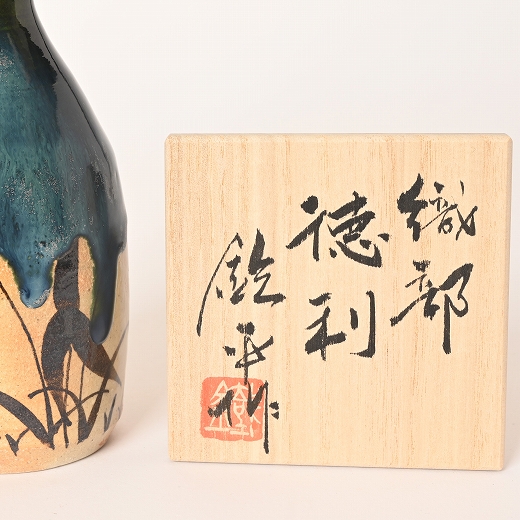 織部
徳利
平作